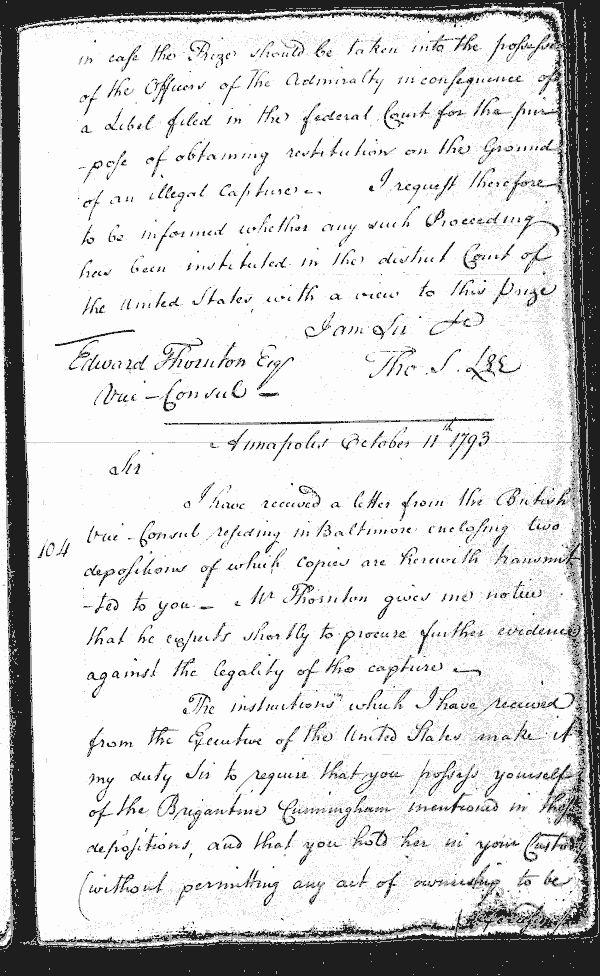 in case the Prize should be taken into the possess
of the Officers of the Admiralty in consequence of
a Libel filed in the federal Court for the pur
-pose of obtaining restitution on the Ground
of an illegal Capture. I request therefore
to be informed whether any such Proceeding
has been instituted in the district Court of
the United States, with a view to this Prize
I am Sir &c
Edward Thornton Esqr Tho. S. Lee
Vice-Consul
Annapolis October 11th 1793
Sir
I have received a letter from the British
104
Vice-Consul residing in Baltimore enclosing two
depositions of which copies are herewith transmit
-ted to you. Mr Thornton gives me notice
that he expects shortly to procure further evidence
against the legality of the capture
The instructions which I have received
from the Executive of the United States make it
my duty Sir to require that you possess yourself
of the Brigantine Cunningham mentioned in these
depositions, and that you hold her in your Custody
(without permitting any act of ownership to be